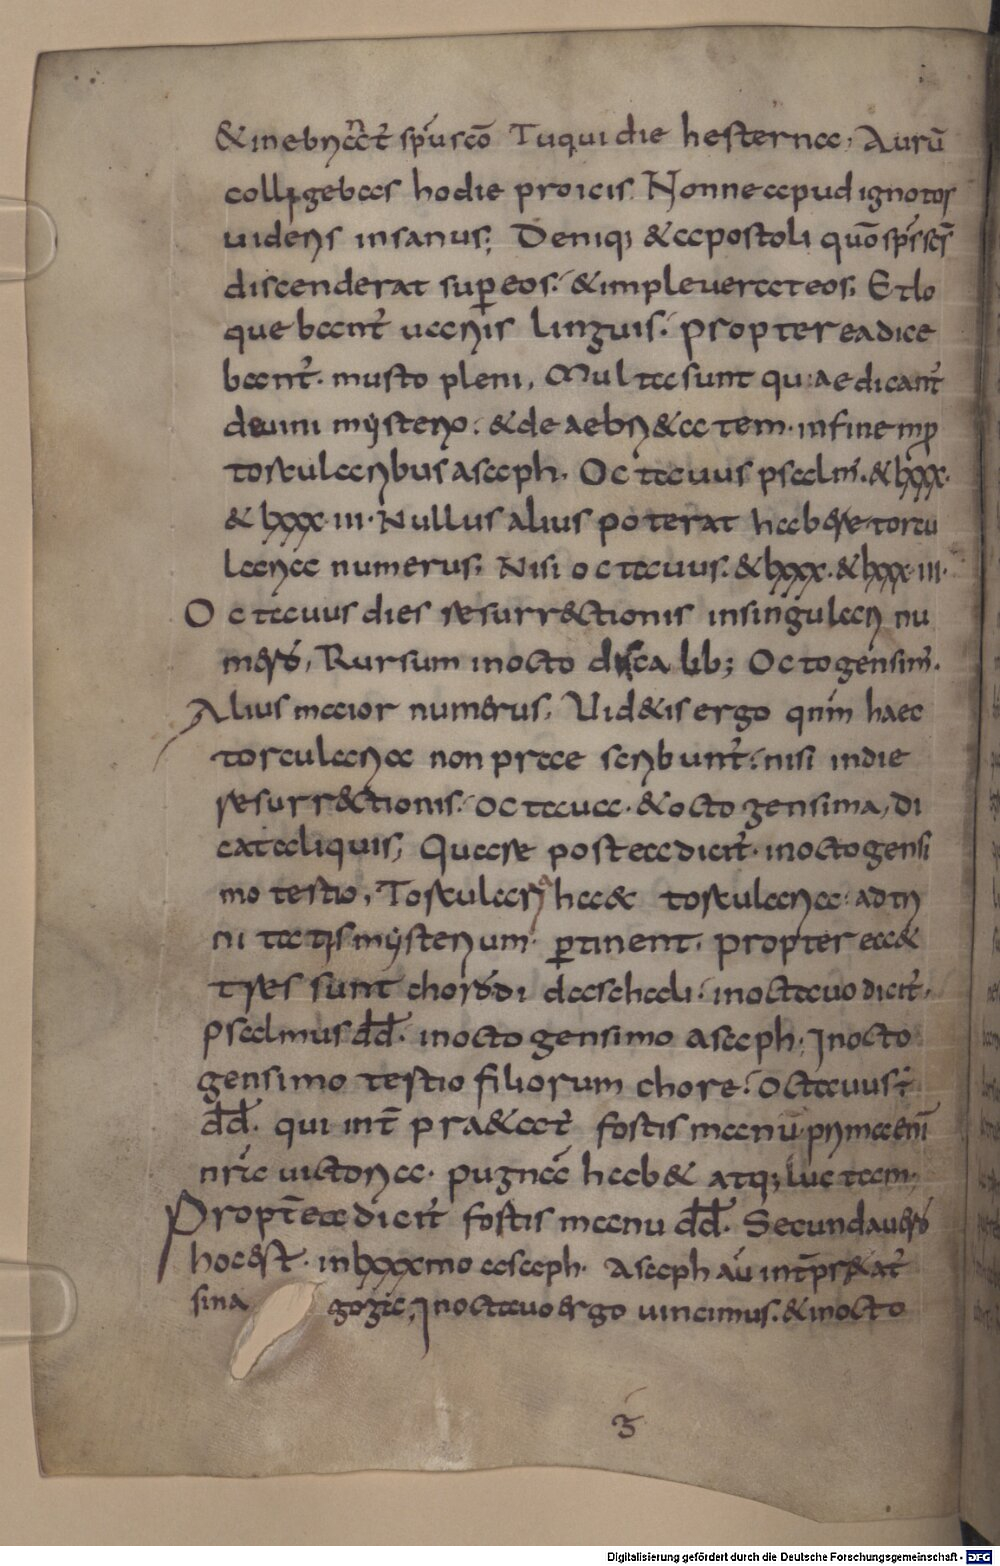 & inebriant spū scō Tu qui die hesterna, Aurū
colligebas hodie proicis. Nonne apud ignotos
uideris insanus; Deniq; & apostoli quō sps scs
discenderat super eos. & impleuerat eos; Et lo
quebant̄ uariis linguis. propterea dice
bant̄. musto pleni, Multa sunt quae dicant̄
de uini mysterio. & de aebri&atem. in fine inp
torculari bus asaph. Octauus psalm̄. & lxxx.
& lxxx.iii. Nullus alius poterat habere torcu
laria numerus; Nisi octauus. & lxxx. & lxxx.iii.
Octauus dies resurrectionis in singulari nu
mero, Rursum in octo disca lib; Octogensim̄.
Alius maior numerus, Uid&is ergo qnm haec
torcularia non prae scribunt̄. nisi in die
resurrectionis. octaua. & octogensima, di
cat aliquis; Quare postea dicit̄. in octogensi
mo tertio, Torcularia hae& torcularia ad tri
ni tatis mysterium pertinent. propterea &
tres sunt chori ddi daschali. in octauo dicit̄,
Psalmus dd̄. in octogensimo asaph. In octo
gensimo tertio filiorum chore. Octauus
dd̄. qui int̄ pra&at̄ fortis manu. primae
nrae uictoria. pugnā hab& atq; luctam.
Propterea dicit̄ fortis manu dd̄. Secunda uero
hoc est. in lxxxmo asaph. Asaph aū int̄pr&at̄
sina gogae; In octauo ergo uincimus. & in octo